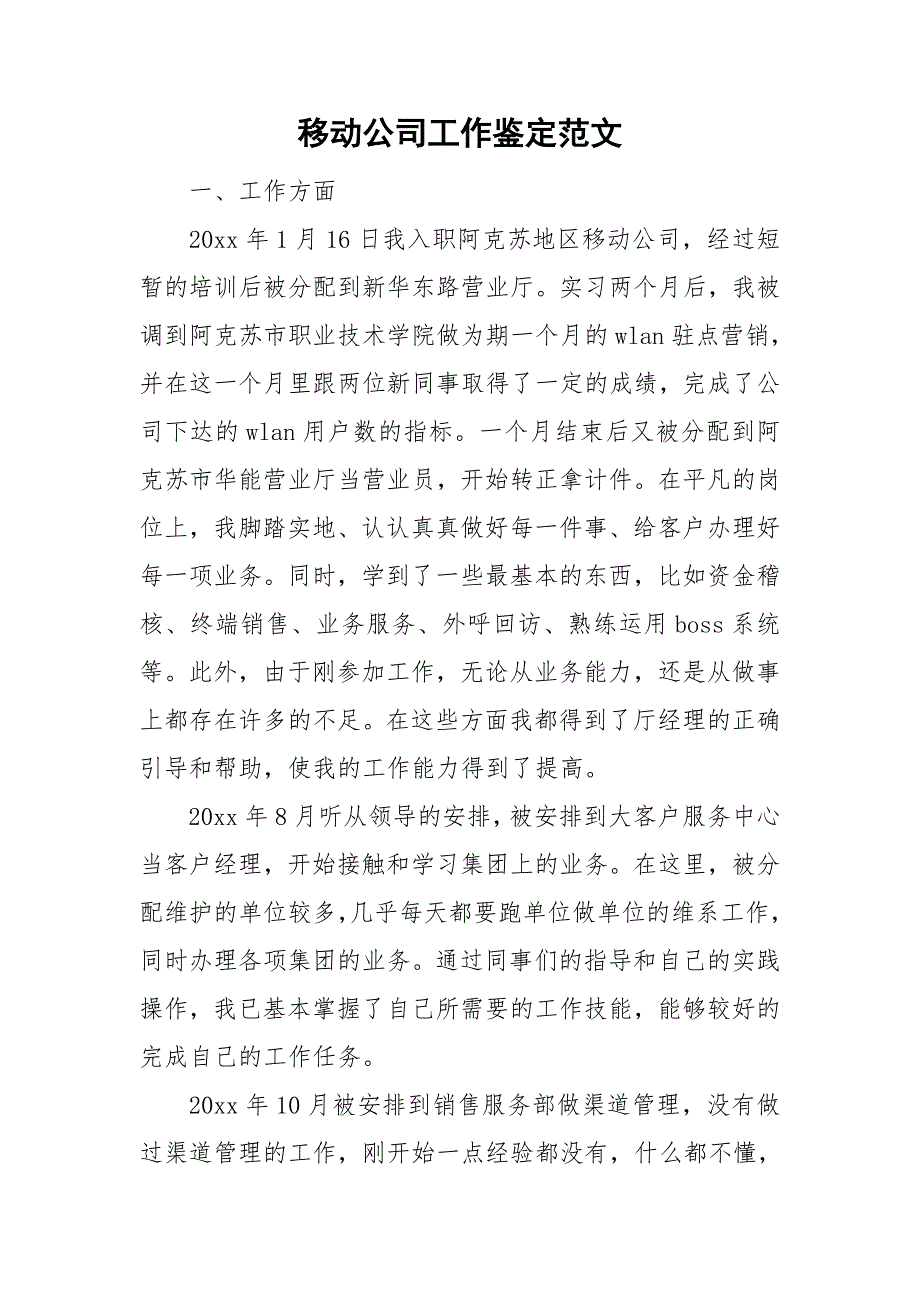 移动公司工作鉴定范文
一、工作方面
20xx 年 1 月 16 日我入职阿克苏地区移动公司，经过短
暂的培训后被分配到新华东路营业厅。实习两个月后，我被
调到阿克苏市职业技术学院做为期一个月的 wlan 驻点营销，
并在这一个月里跟两位新同事取得了一定的成绩，完成了公
司下达的 wlan 用户数的指标。一个月结束后又被分配到阿
克苏市华能营业厅当营业员，开始转正拿计件。在平凡的岗
位上，我脚踏实地、认认真真做好每一件事、给客户办理好
每一项业务。同时，学到了一些最基本的东西，比如资金稽
核、终端销售、业务服务、外呼回访、熟练运用 boss 系统
等。此外，由于刚参加工作，无论从业务能力，还是从做事
上都存在许多的不足。在这些方面我都得到了厅经理的正确
引导和帮助，使我的工作能力得到了提高。
20xx 年 8 月听从领导的安排，被安排到大客户服务中心
当客户经理，开始接触和学习集团上的业务。在这里，被分
配维护的单位较多，几乎每天都要跑单位做单位的维系工作，
同时办理各项集团的业务。通过同事们的指导和自己的实践
操作，我已基本掌握了自己所需要的工作技能，能够较好的
完成自己的工作任务。
20xx 年 10 月被安排到销售服务部做渠道管理，没有做
过渠道管理的工作，刚开始一点经验都没有，什么都不懂，